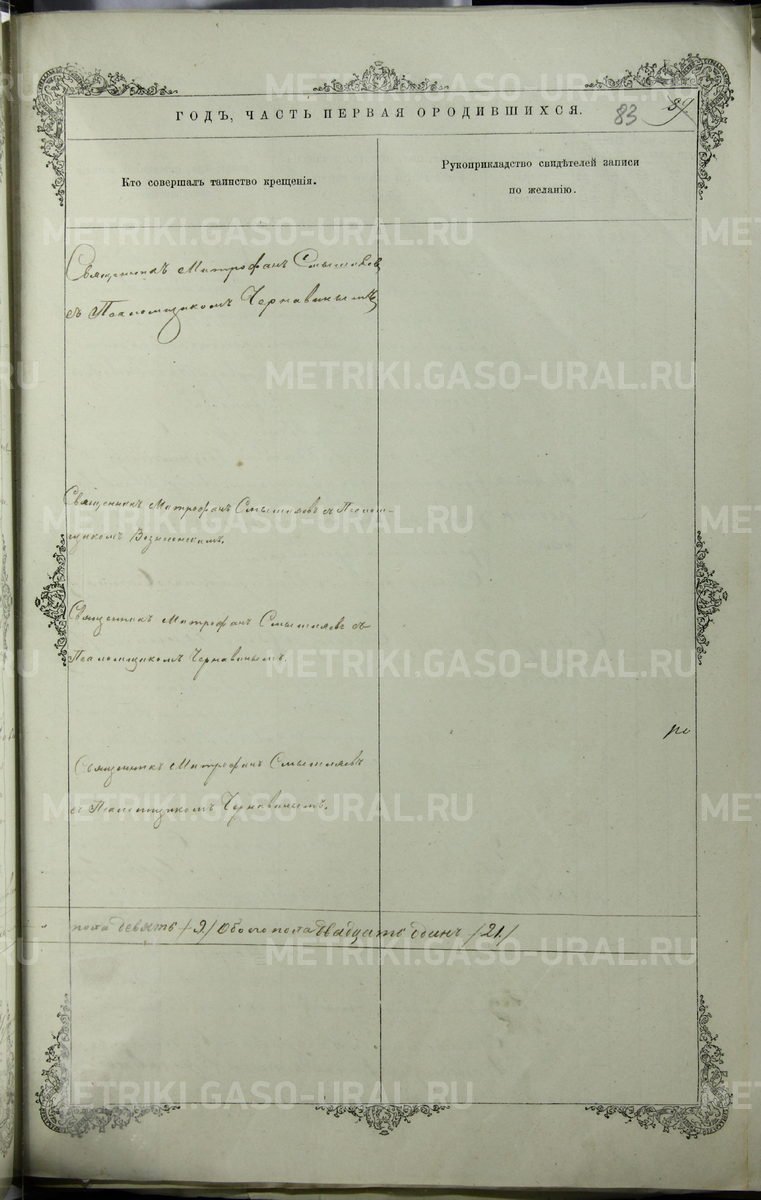 ГОДЪ, ЧАСТЬ ПЕРВАЯ О РОДИВШИХСЯ.
83
89
Кто совершалъ таинство крещенія.
Рукоприкладство свидѣтелей записи
по желанію.
Священникъ Митрофанъ Смышляевъ
съ Псаломщикомъ Чернавинымъ
Священникъ Митрофанъ Смышляевъ съ Псалом-
щикомъ Вознесенскимъ.
Священникъ Митрофанъ Смышляевъ съ
Псаломщикомъ Чернавинымъ.
по
Священникъ Митрофанъ Смышляевъ
съ Псаломщикомъ Чернавинымъ.
пола девять /9/ Обоего пола двадцать одинъ /21/
METRIKI.GASO-URAL.RU